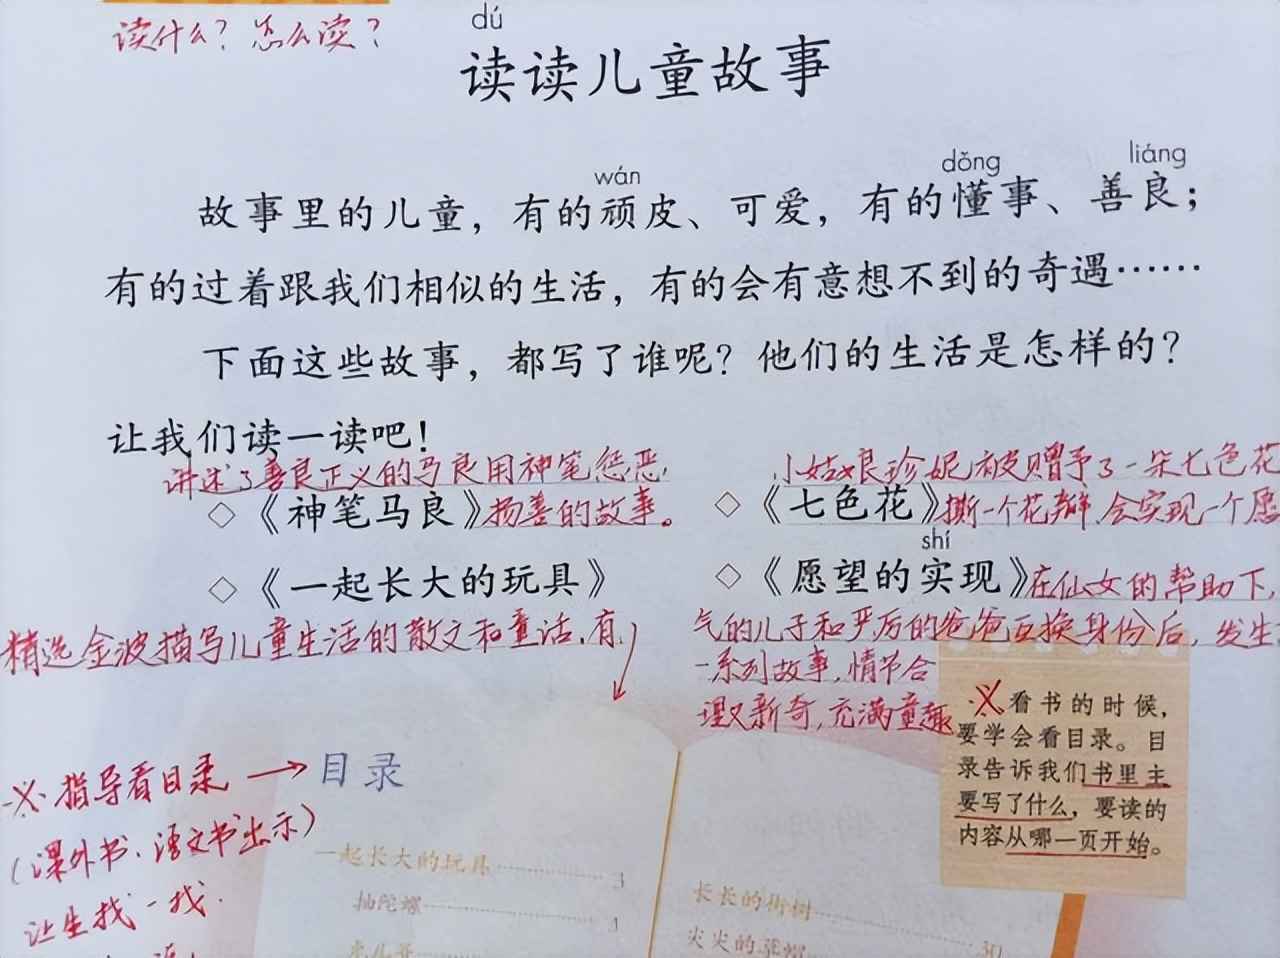 读什么？怎么读？
dú
读读儿童故事
wán dǒng liáng
故事里的儿童，有的顽皮、可爱，有的懂事、善良；
有的过着跟我们相似的生活，有的会有意想不到的奇遇……
下面这些故事，都写了谁呢？他们的生活是怎样的？
让我们读一读吧！
讲述了善良正义的马良用神笔惩恶
◇《神笔马良》扬善的故事。
小姑娘珍妮被赠予了一朵七色花
◇《七色花》撕一个花瓣，会实现一个愿
shí
◇《一起长大的玩具》
◇《愿望的实现》在仙女的帮助下，
精选金波描写儿童生活的散文和童话，有
气的儿子和严厉的爸爸互换身份后，发生
一系列故事，情节合
理又新奇，充满童趣
看书的时候，
要学会看目录。目
录告诉我们书里主
要写了什么，要读的
内容从哪一页开始。
※指导看目录→目录
（课外书、语文书出示）
让生找一找.
一起长大的玩具……3
抽陀螺……4
长长的街树……
尖尖的草帽……30